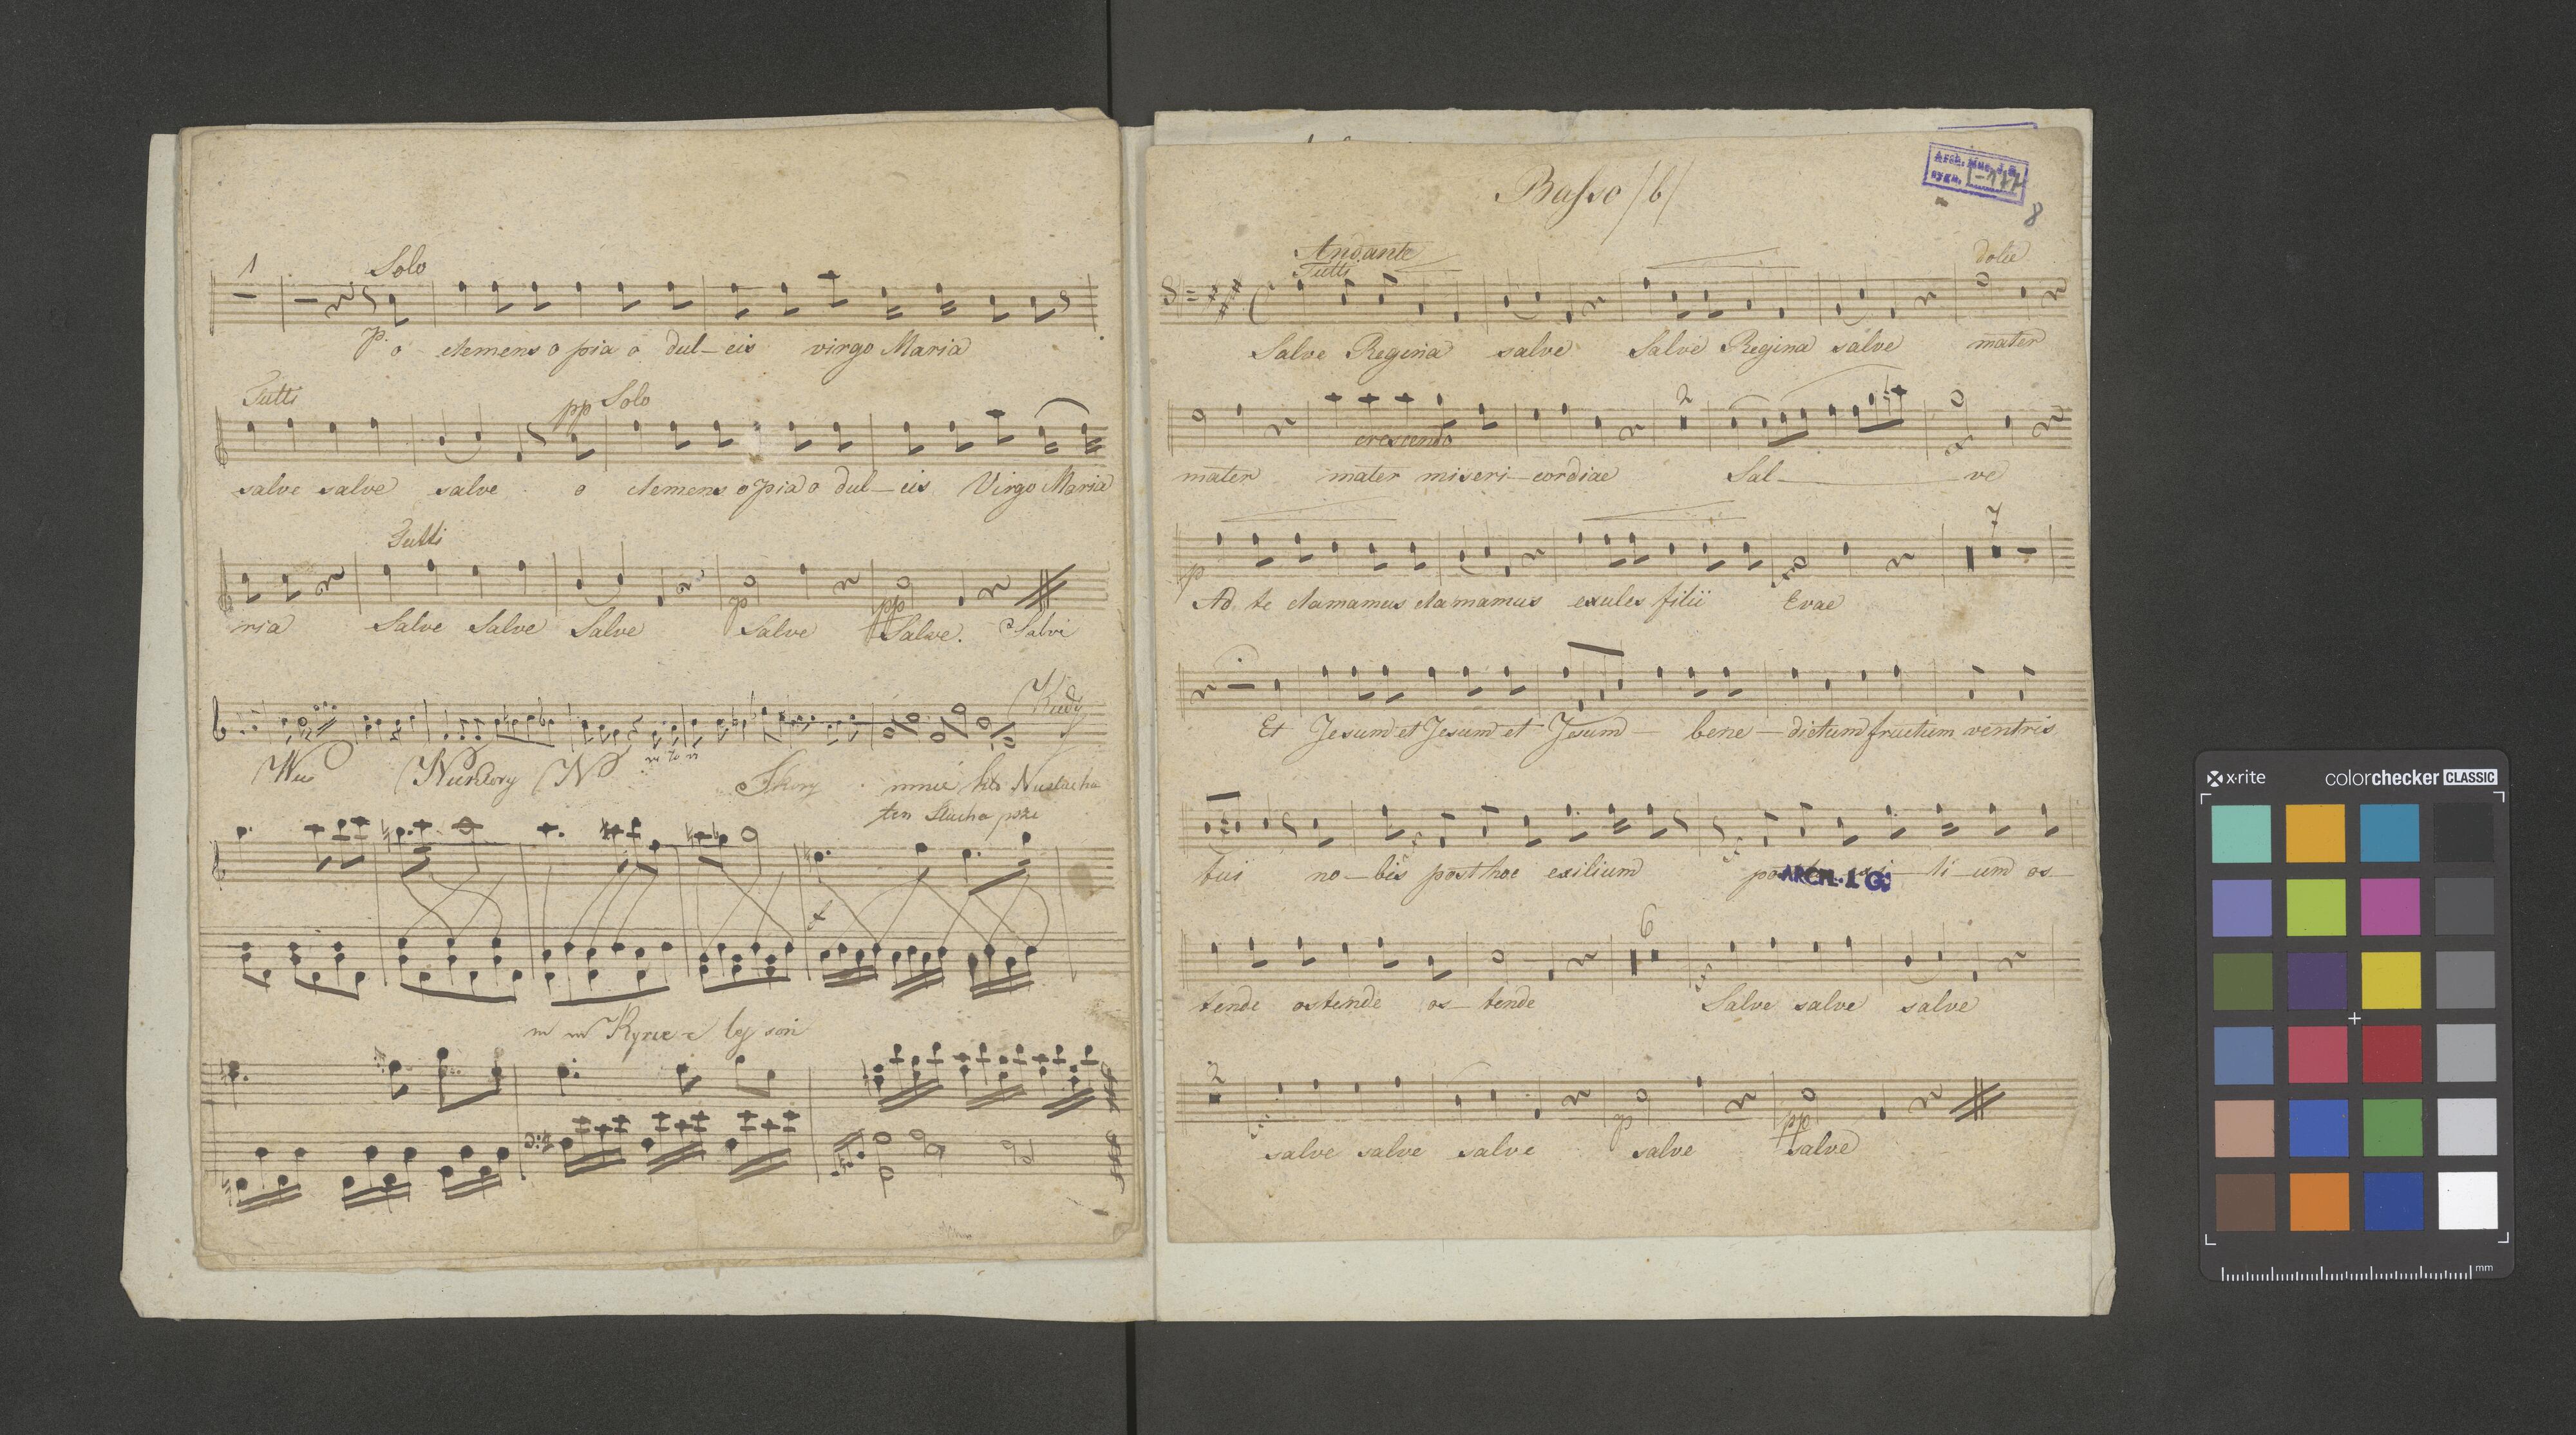 1 Solo
p. o clemens o pia o dul-cis virgo Maria
Tutti pp Solo
salve salve salve o clemens o pia o dul-cis Virgo Maria
Tutti
ria Salve Salve Salve p Salve pp Salve. Salvi
Kiedy
mnie kto
ten
f
Kyrie e lej son
Basso /b/
8
Andante
Tutti dolce
Salve Regina salve Salve Regina salve mater
2
crescendo
mater mater miseri-cordiae Sal- ve
7
p
Ad te clamamus clamamus exules filii Evae
Et Jesum et Jesum et Jesum - bene - dictum fructum ventris
tui no-bis post hoc exilium li-um os-
ARCH. J. G.
6
tende ostende os-tende Salve salve salve
2
p pp
salve salve salve salve salve
x-rite colorchecker CLASSIC
mm